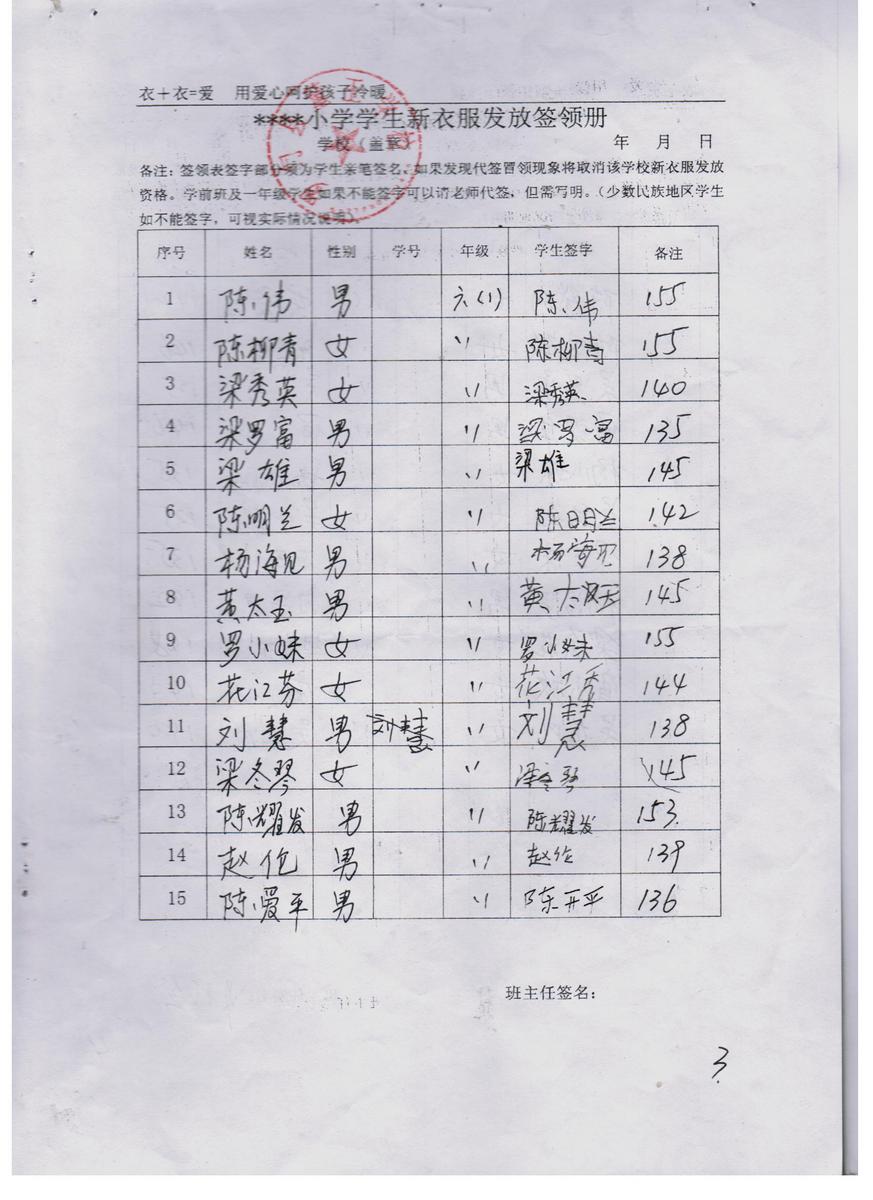 衣＋衣=爱 用爱心呵护孩子冷暖
****小学学生新衣服发放签领册
学校（盖章） 年 月 日
备注：签领表签字部分须为学生亲笔签名，如果发现代签冒领现象将取消该学校新衣服发放
资格。学前班及一年级学生如果不能签字可以请老师代签，但需写明。（少数民族地区学生
如不能签字，可视实际情况说明）
序号 姓名 性别 学号 年级 学生签字 备注
1 陈伟 男 六(1) 陈伟 155
2 陈柳青 女 〃 陈柳青 155
3 梁秀英 女 〃 梁秀英 140
4 梁罗富 男 〃 梁罗富 135
5 梁雄 男 〃 梁雄 145
6 陈明兰 女 〃 陈明兰 142
7 杨海见 男 〃 杨海见 138
8 黄太玉 男 〃 黄太 145
9 罗小妹 女 〃 罗小妹 155
10 花江芬 女 〃 花江秀 144
11 刘慧 男 刘慧 〃 刘慧 138
12 梁冬琴 女 〃 梁冬琴 145
13 陈耀发 男 〃 陈耀发 153
14 赵伦 男 〃 赵伦 139
15 陈爱平 男 〃 陈开平 136
班主任签名：
3